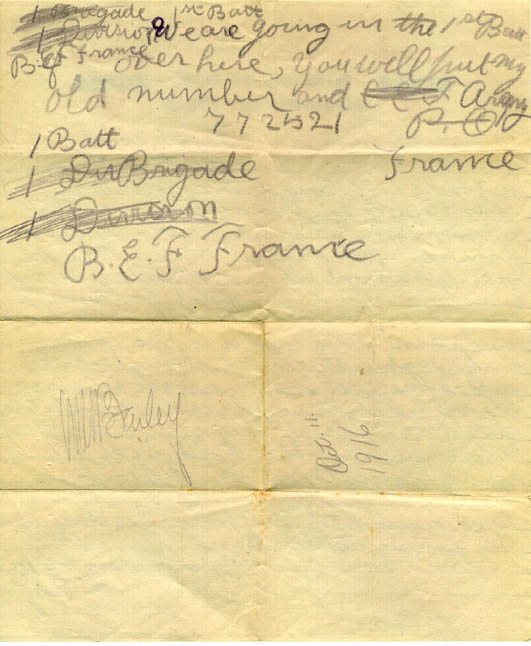 1 Brigade 1st Batt
1 Division We are going in the 1st Batt
B.E.F France over here, you will put my
old number and C E F Army
772521 P.O
1 Batt
1 Brigade France
1 Division
B.E.F France
Oct. 11.
1916